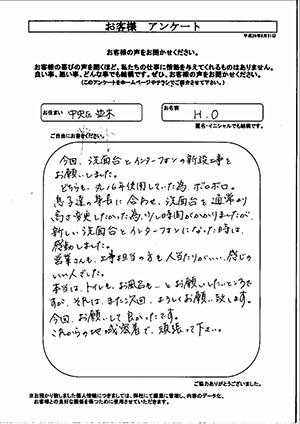 お客様 アンケート
平成29年8月31日
お客様の声をお聞かせください。
お客様の喜びの声を聞くほど、私たちの仕事に情熱を与えてくれるものはありません。
良い事、悪い事、どんな事でも結構です。ぜひ、お客様の声をお聞かせください。
(このアンケートをホームページやチラシでご紹介させて下さい。)
お住まい 中央区 並木
お名前 H.O
匿名・イニシャルでも結構です。
ご自由にお書きください。
今回、洗面台とインターフォンの新設工事を
お願いしました。
どちらも、丸16年使用していた為、ボロボロ。
息子達の身長に合わせ、洗面台を通常より
高さ変更したかった為、少し時間がかかりましたが、
新しい洗面台とインターフォンになった時は、
感動しました。
営業さんも、工事担当の方も人当たりがいい、感じの
いい人でした。
本当は、トイレも、お風呂も…とお願いしたいところで
すが、それは、また次回、よろしくお願い致します。
今回、お願いして良かったです。
これからの地域密着で、頑張って下さい。
ご協力ありがとうございました。
※お預かり致しました個人情報につきましては、弊社にて厳重に管理し、内容のデータ化、
お客様との良好な関係を保つために使用させていただきます。